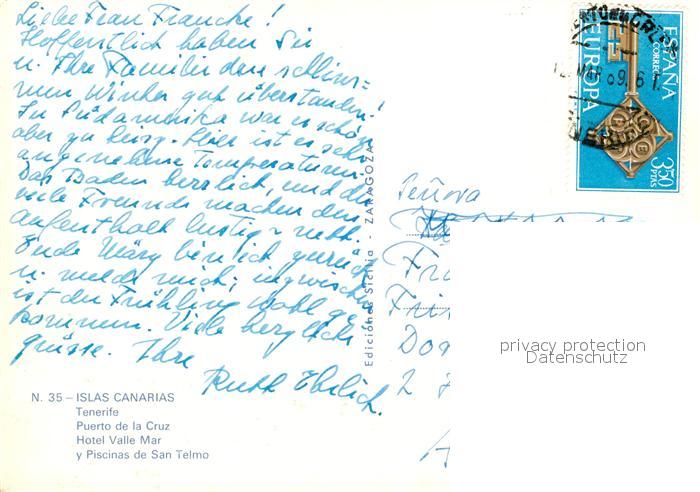 Liebe Frau Francke!
Hoffentlich haben Sie
u. Ihre Familie den schlim=
men Winter gut überstanden!
In Südamerika war es schön
aber zu heiss. Hier ist es sehr
angenehme Temperaturen.
Das Baden herrlich, und die
viele Freunde machen den
Aufenthalt lustig u nett.
Ende März bin ich zurück
u. melde mich; inzwischen
ist der Frühling wohl ge=
kommen. Viele herzliche
grüsse. Ihre
Ruth Ehrlich.
N. 35 – ISLAS CANARIAS
Tenerife
Puerto de la Cruz
Hotel Valle Mar
y Piscinas de San Telmo
Ediciones Sicilia - ZARAGOZA
ESPAÑA
CORREOS
EUROPA
3'50
PTAS
MAR 69
Señora
Fr
Fri
Do
2
A
privacy protection
Datenschutz